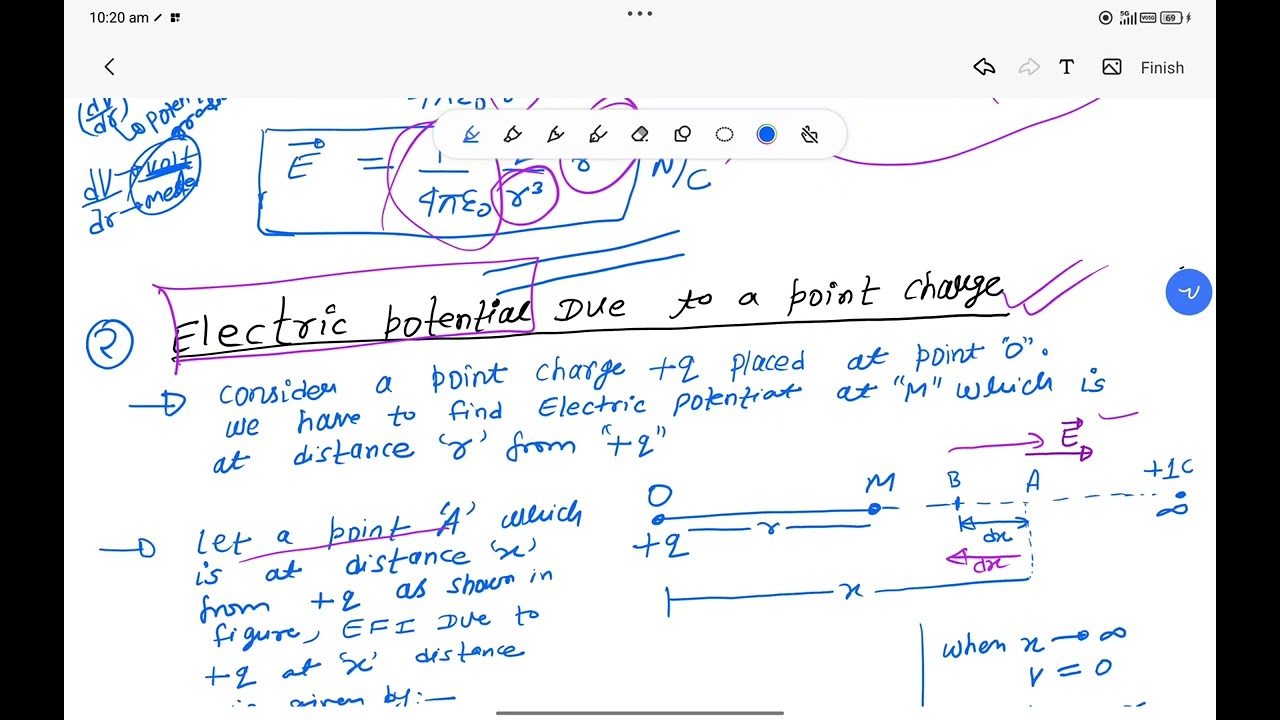 10:20 am
5G
69
T
Finish
(dV/dr)
dV/dr → volt/meter
E = 1/4πε0 r³ N/C
② Electric potential Due to a point charge
→ consider a point charge +q placed at point "O".
we have to find Electric potential at "M" which is
at distance 'r' from "+q"
E
O M B A +1C
r dx ∞
+q dx
x
→ Let a point 'A' which
is at distance 'x'
from +q as shown in
figure, EFI Due to
+q at 'x' distance
is given by:—
when x → ∞
V = 0